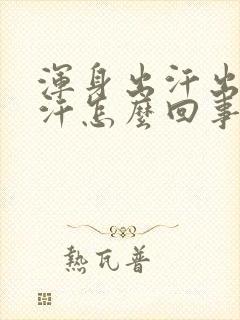 渾身出汗出
汗怎麼回事
熱瓦普